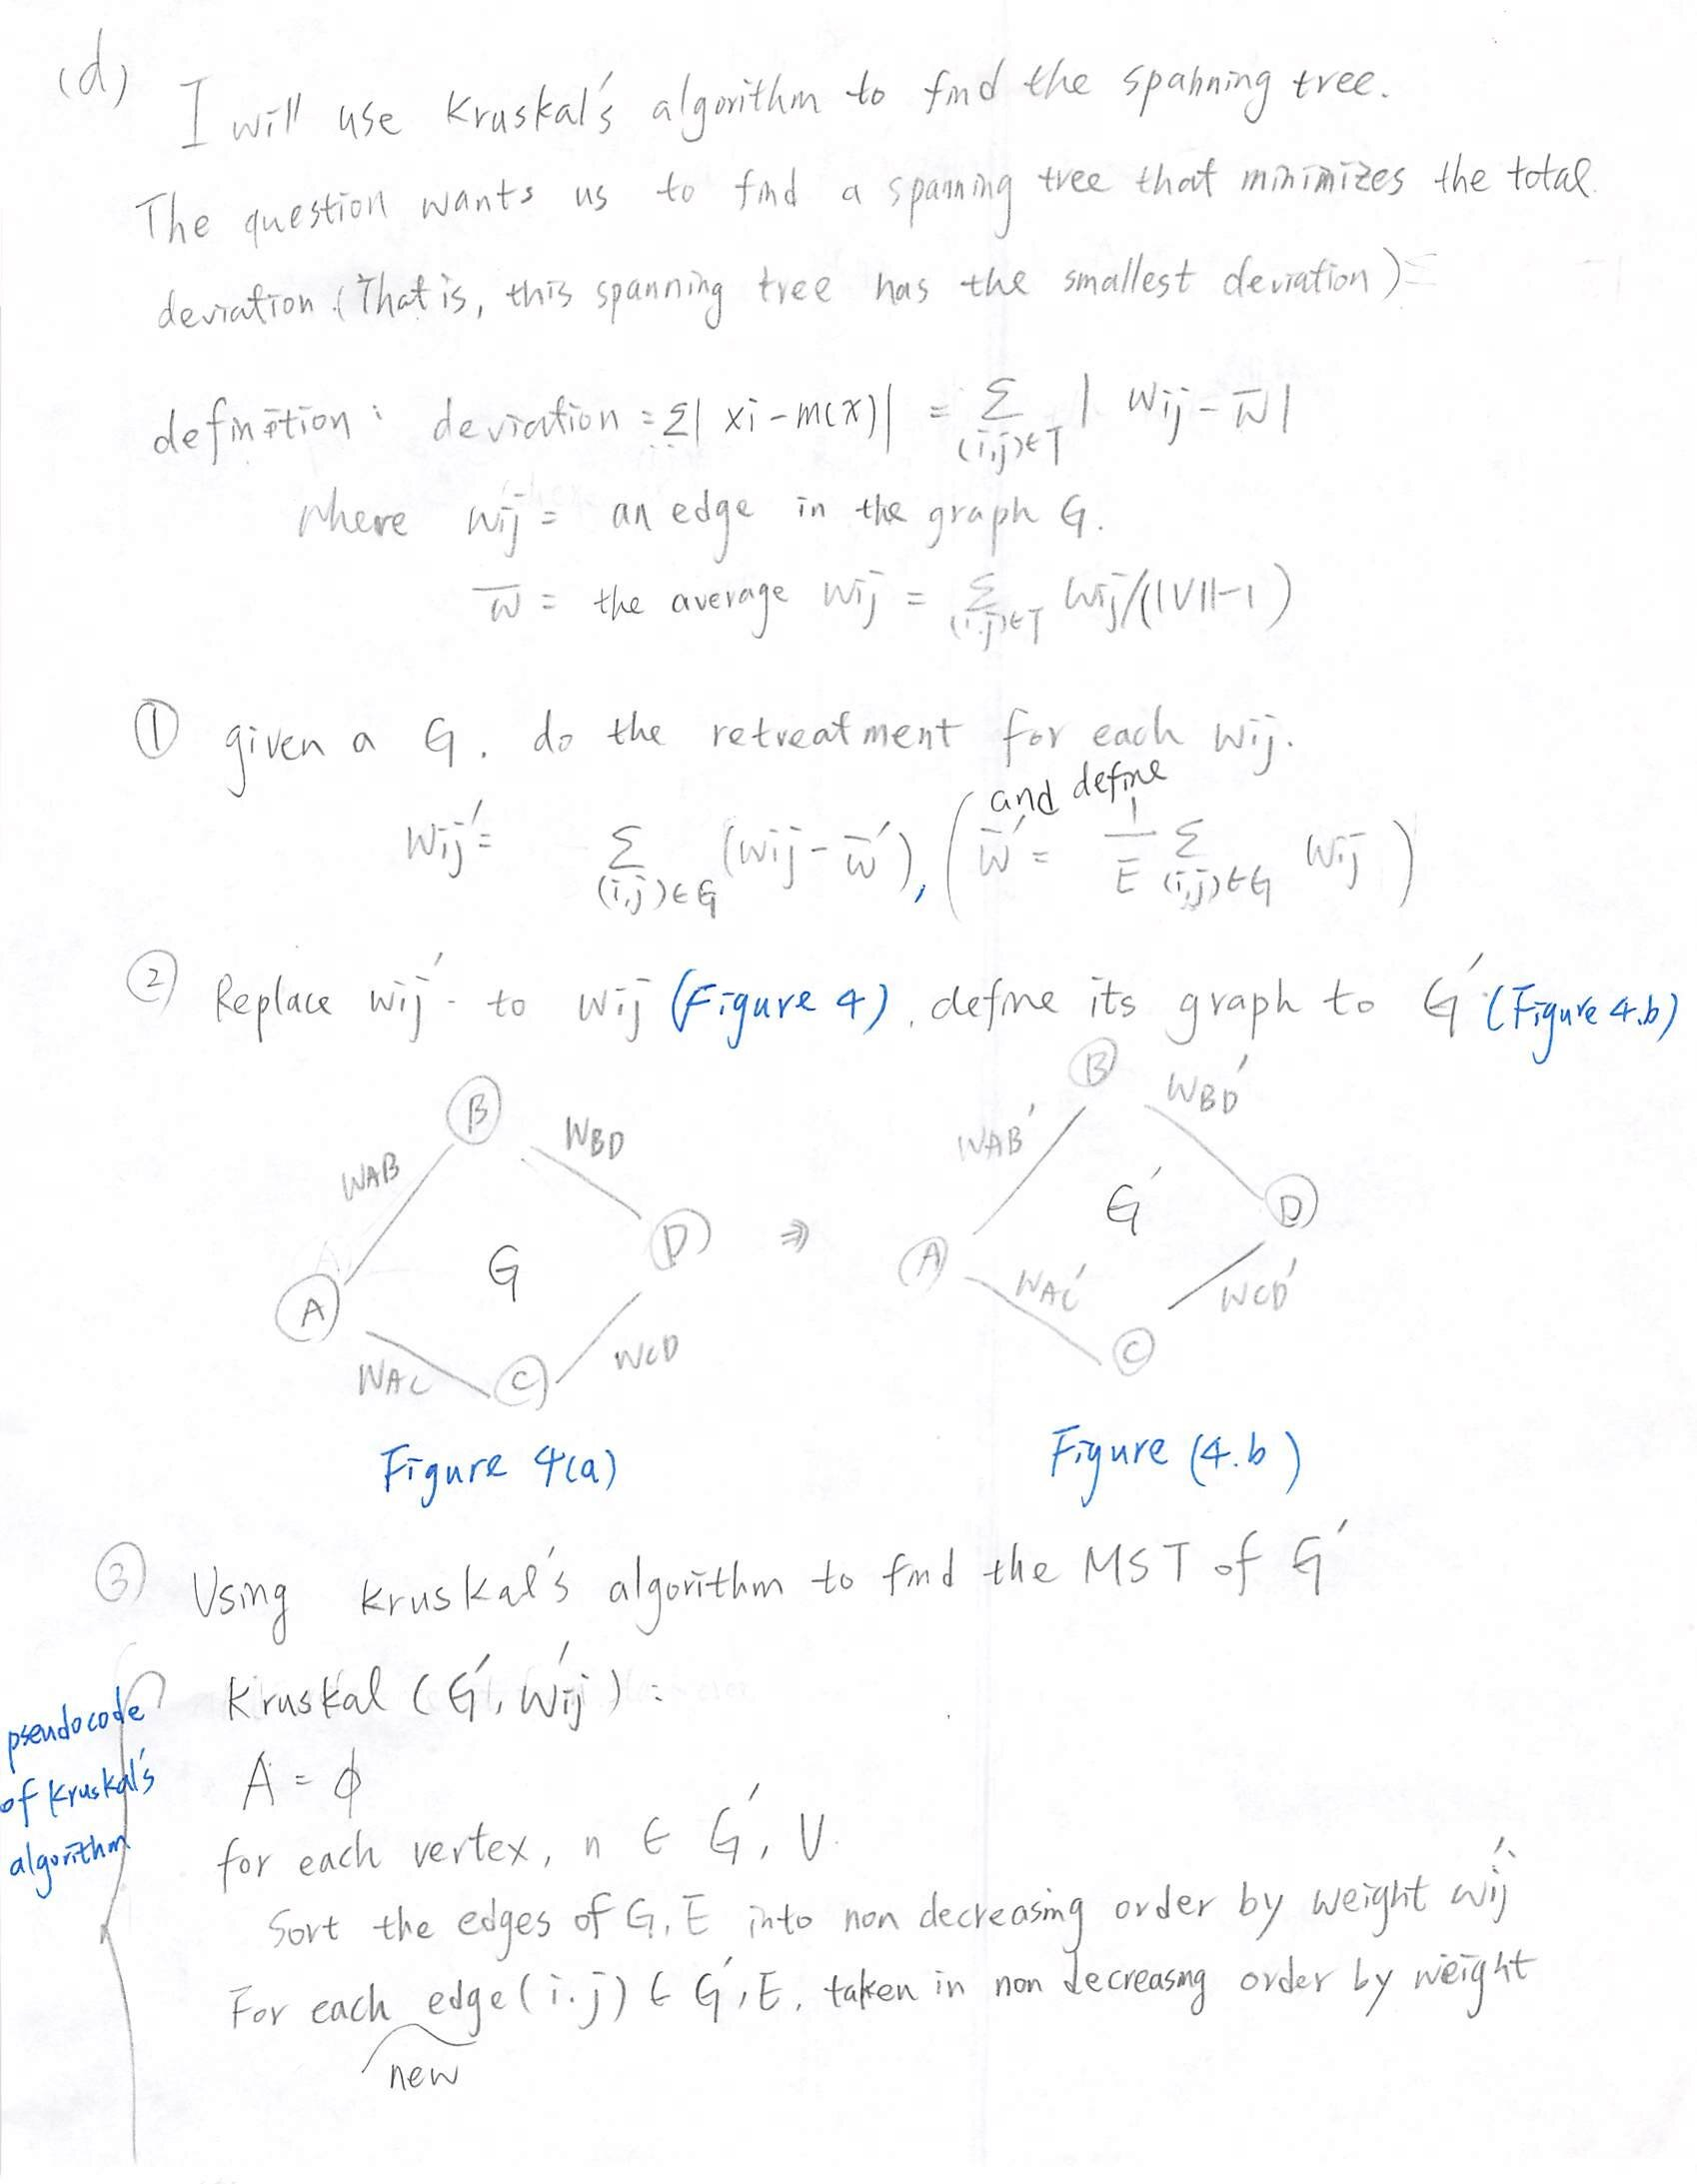 (d) I will use Kruskal's algorithm to find the spanning tree.
The question wants us to find a spanning tree that minimizes the total
deviation. (That is, this spanning tree has the smallest deviation) =
definition : deviation = Σ| xi - m(x)| = Σ (i,j)∈T | wij - w̅ |
where wij = an edge in the graph G.
w̅ = the average wij = Σ (i,j)∈T wij/(|V|-1)
① given a G, do the retreatment for each wij.
and define
wij' = Σ (i,j)∈G (wij - w̅'), ( w̅' = 1/E Σ (i,j)∈G wij )
② Replace wij' to wij (Figure 4), define its graph to G' (Figure 4.b)
B WBD B WBD'
WAB WAB'
G D ⇒ G' D
A WAC C WCD A WAC' C WCD'
Figure 4(a) Figure (4.b)
③ Using Kruskal's algorithm to find the MST of G'
Kruskal (G', wij') :
pseudocode
of Kruskal's
algorithm
A = ϕ
for each vertex, n ∈ G', V.
Sort the edges of G, E into non decreasing order by weight wij'
For each edge (i.j) ∈ G', E, taken in non decreasing order by weight
new